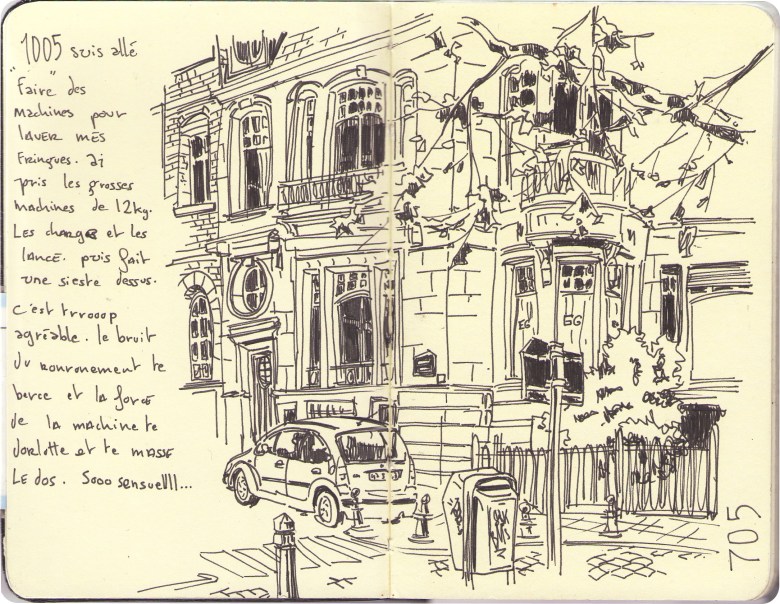 1005 suis allé
"faire" des
machines pour
laver mes
fringues. ai
pris les grosses
machines de 12kg.
Les charge et les
lance. puis fait
une sieste dessus.
c'est trrooop
agréable. le bruit
du ronronement te
berce et la force
de la machine te
dorlotte et te masse
le dos. Sooo sensuelll...
GG
705